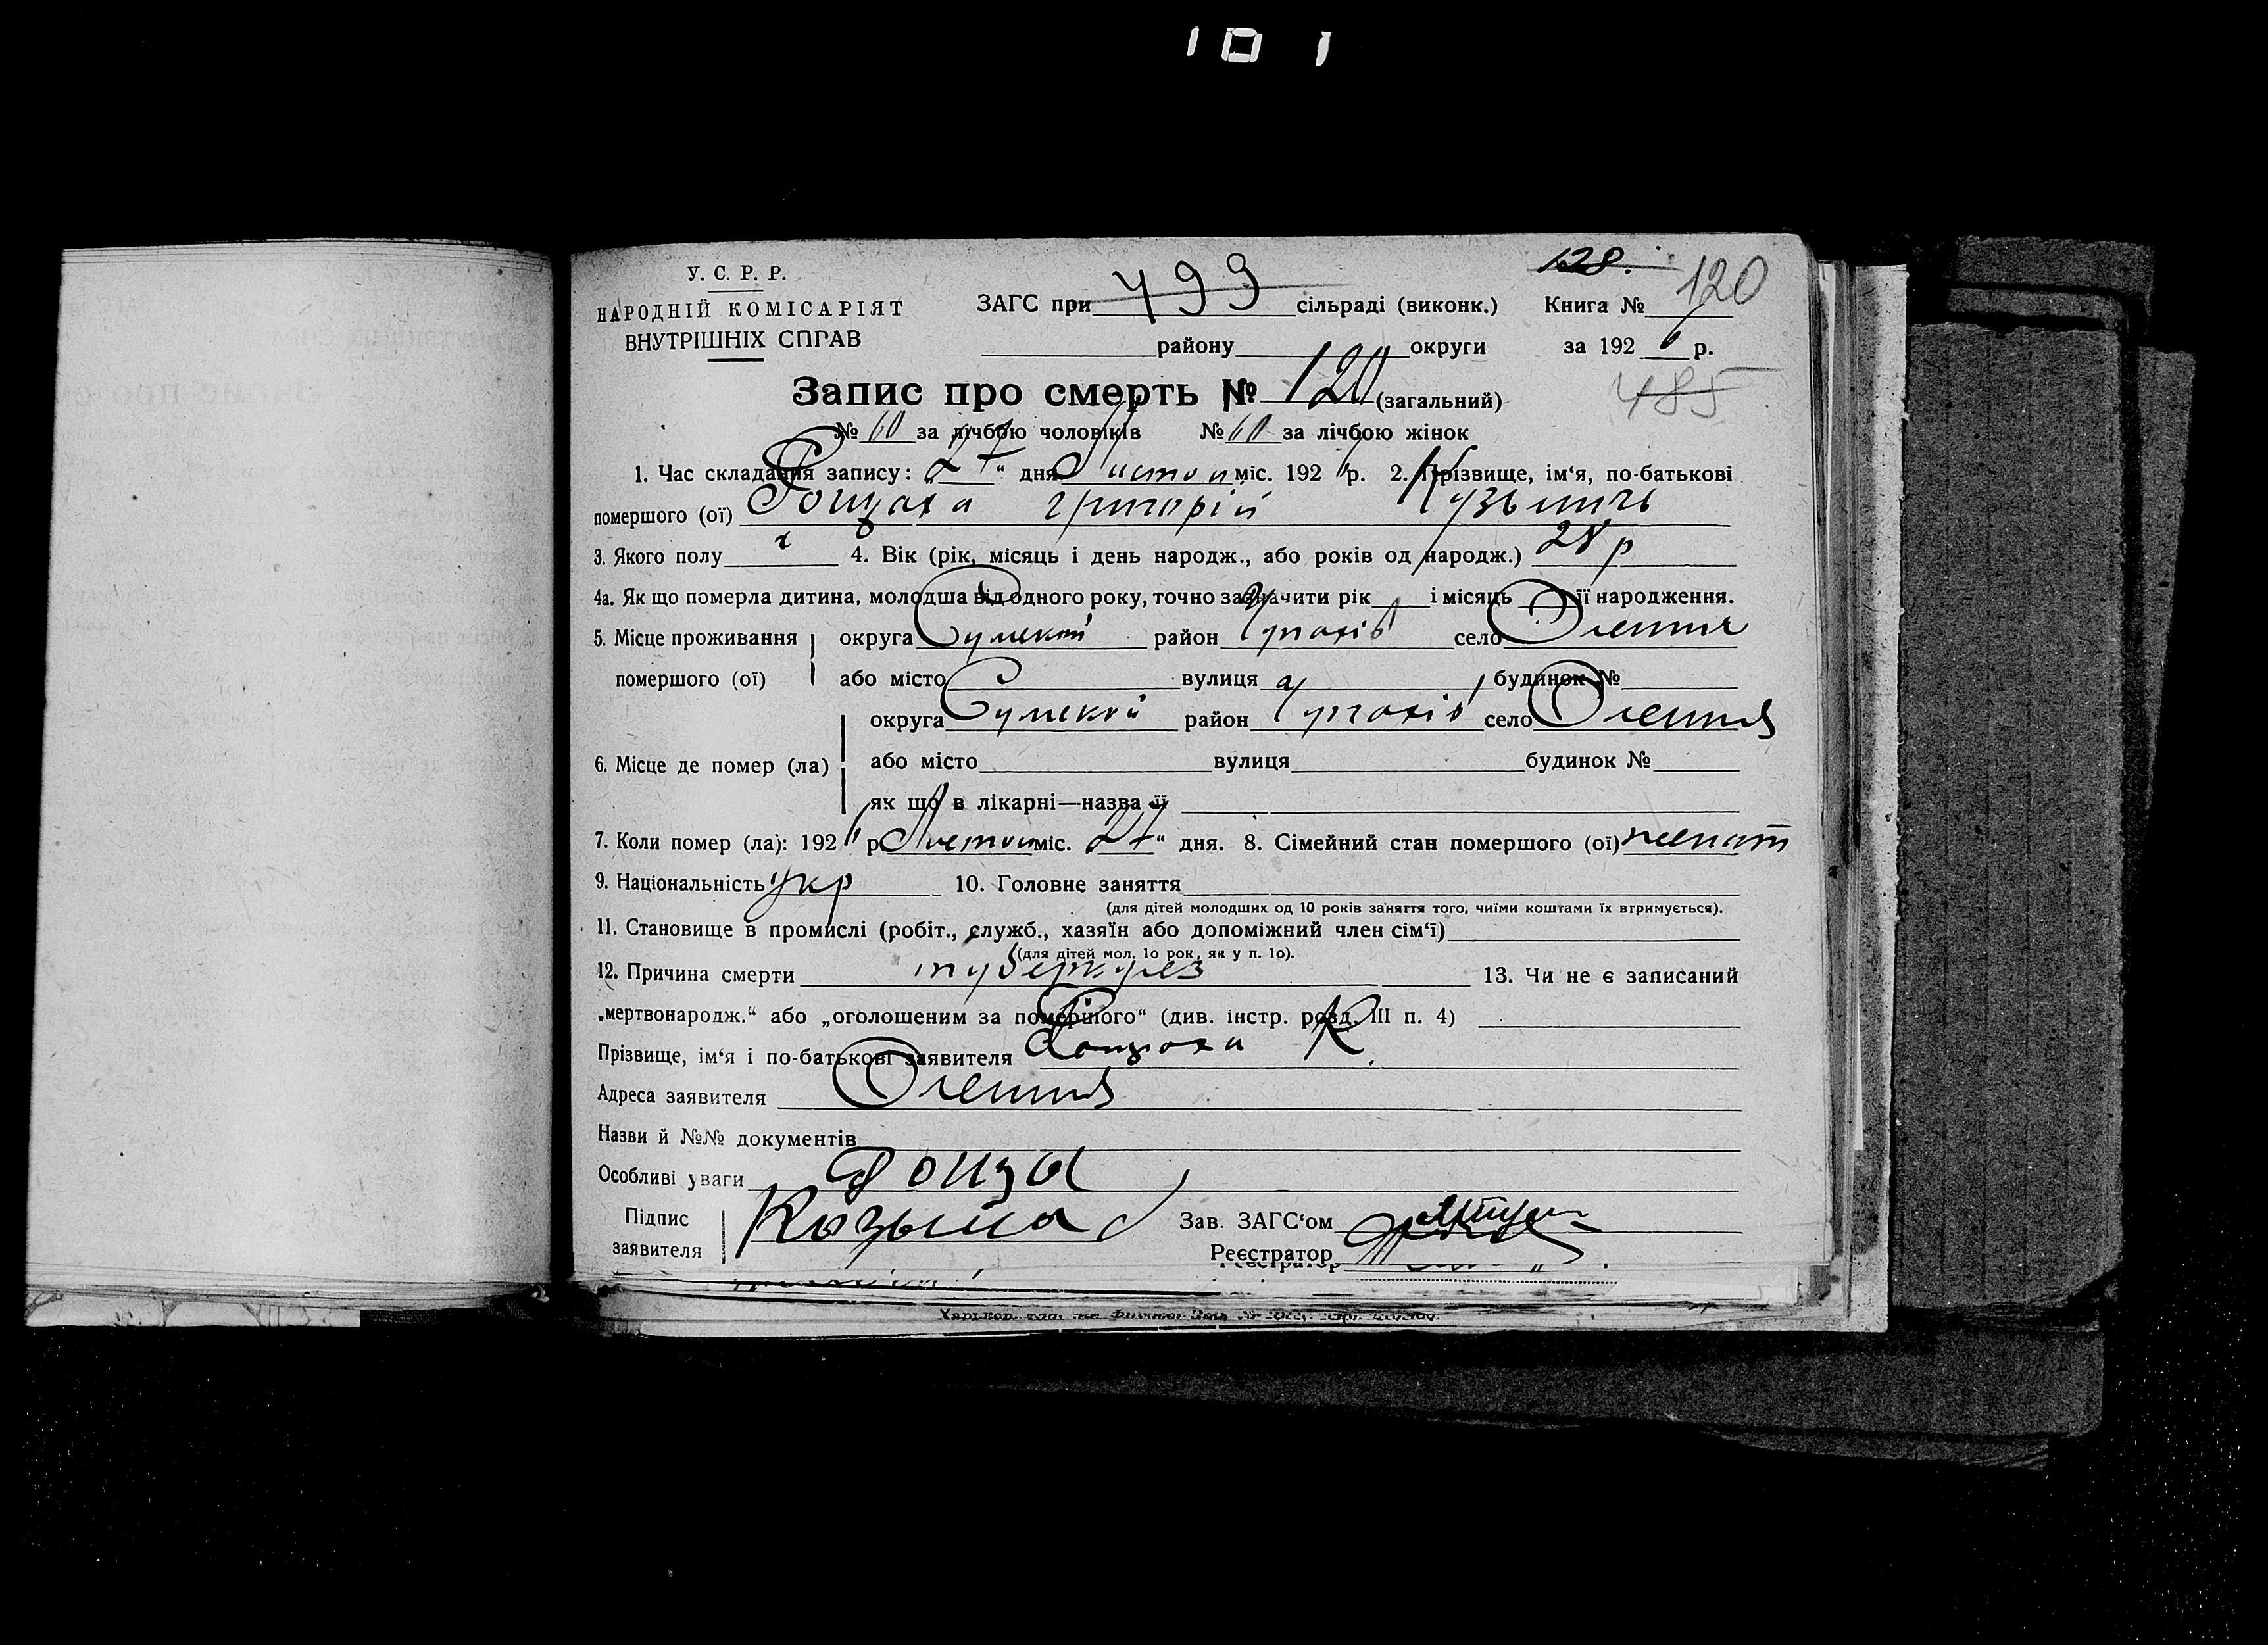 101
У. С. Р. Р.
НАРОДНІЙ КОМІСАРІЯТ
ВНУТРІШНІХ СПРАВ
ЗАГС при 499 сільраді (виконк.)
району округи
128.
Книга № 120
за 192 6 р.
485
Запис про смерть № 120 (загальний)
№ 60 за лічбою чоловіків № 60 за лічбою жінок
1. Час складання запису: „27“ дня Листоп міс. 192 р. 2. Прізвище, ім‘я, по-батькові
помершого (ої) Григорій Кузьмичь
3. Якого полу ч 4. Вік (рік, місяць і день народж., або років од народж.) 28 р
4а. Як що померла дитина, молодша від одного року, точно зазначити рік і місяць її народження.
5. Місце проживання округа Сумськой район село
помершого (ої) або місто вулиця будинок №
округа Сумской район село
6. Місце де помер (ла) або місто вулиця будинок №
як що в лікарні—назва її
7. Коли помер (ла): 192 р Листоп міс. 27“ дня. 8. Сімейний стан помершого (ої) женат
9. Національність укр 10. Головне заняття
(для дітей молодших од 10 років заняття того, чиїми коштами їх втримується).
11. Становище в промислі (робіт., служб., хазяїн або допоміжний член сім‘ї)
(для дітей мол. 1о рок, як у п. 1о).
12. Причина смерти туберкулез 13. Чи не є записаний
„мертвонародж.“ або „оголошеним за помершого“ (див. інстр. розд. III п. 4)
Прізвище, ім‘я і по-батькові заявителя К.
Адреса заявителя
Назви й №№ документів
Особливі уваги
Підпис
заявителя
Зав. ЗАГС‘ом
Реєстратор